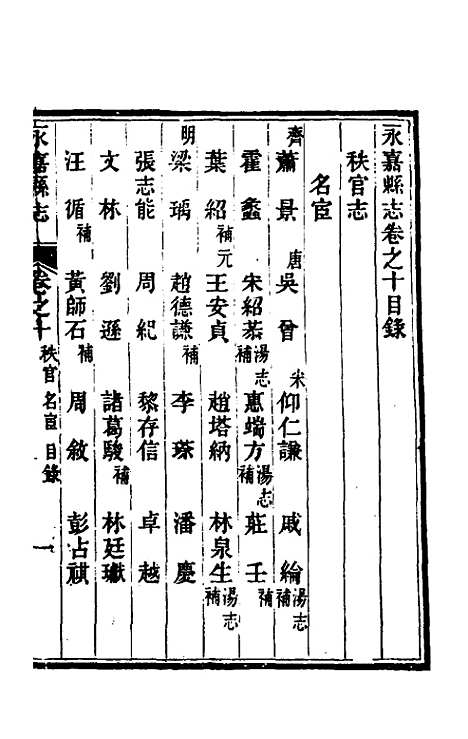 永嘉縣志卷之十目錄
秩官志
名宦
齊 蕭景 唐 吳畣 宋 仰仁謙 戚綸 湯志補
霍蠡 宋紹恭 湯志補 惠端方 湯志補 莊壬 補
葉紹 補 元 王安貞 趙塔納 林泉生 湯志補
明 梁瑀 趙德謙 補 李琛 潘慶
張志能 周紀 黎存信 卓越
文林 劉遜 諸葛駿 補 林廷瓛
汪循 補 黃師石 補 周敘 彭占祺
永嘉縣志 卷之十 秩官 名宦 目錄 一